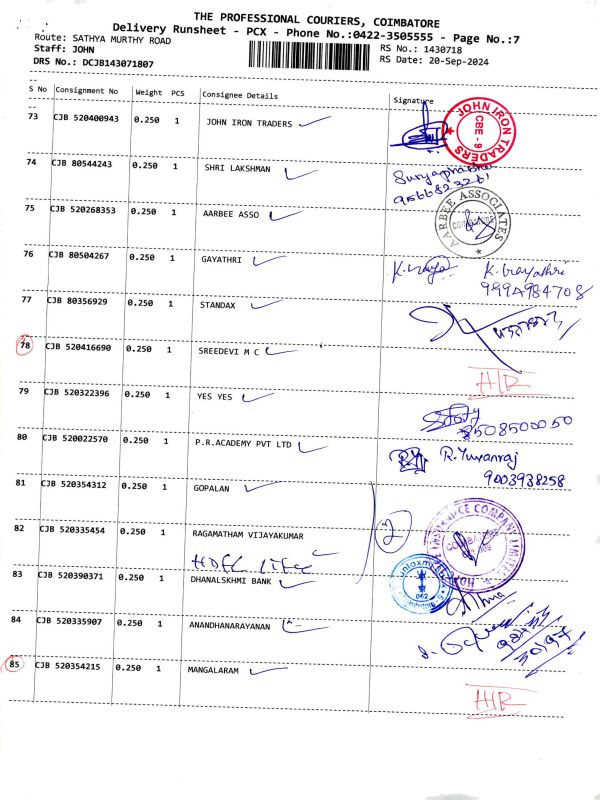 THE PROFESSIONAL COURIERS, COIMBATORE
Delivery Runsheet - PCX - Phone No.:0422-3505555 - Page No.:7
Route: SATHYA MURTHY ROAD RS No.: 1430718
Staff: JOHN RS Date: 20-Sep-2024
DRS No.: DCJB143071807
S No Consignment No Weight PCS Consignee Details Signature
73 CJB 520400943 0.250 1 JOHN IRON TRADERS
JOHN IRON TRADERS CBE - 9
74 CJB 80544243 0.250 1 SHRI LAKSHMAN
75 CJB 520268353 0.250 1 AARBEE ASSO
AARBEE ASSOCIATES
76 CJB 80504267 0.250 1 GAYATHRI
77 CJB 80356929 0.250 1 STANDAX
78 CJB 520416690 0.250 1 SREEDEVI M C
HR
79 CJB 520322396 0.250 1 YES YES
8508500050
80 CJB 520022570 0.250 1 P.R.ACADEMY PVT LTD R.Yuvanraj
9003938258
81 CJB 520354312 0.250 1 GOPALAN
2
82 CJB 520335454 0.250 1 RAGAMATHAM VIJAYAKUMAR
HDFC LIFE
83 CJB 520390371 0.250 1 DHANALSKHMI BANK
84 CJB 520335907 0.250 1 ANANDHANARAYANAN
85 CJB 520354215 0.250 1 MANGALARAM
HR